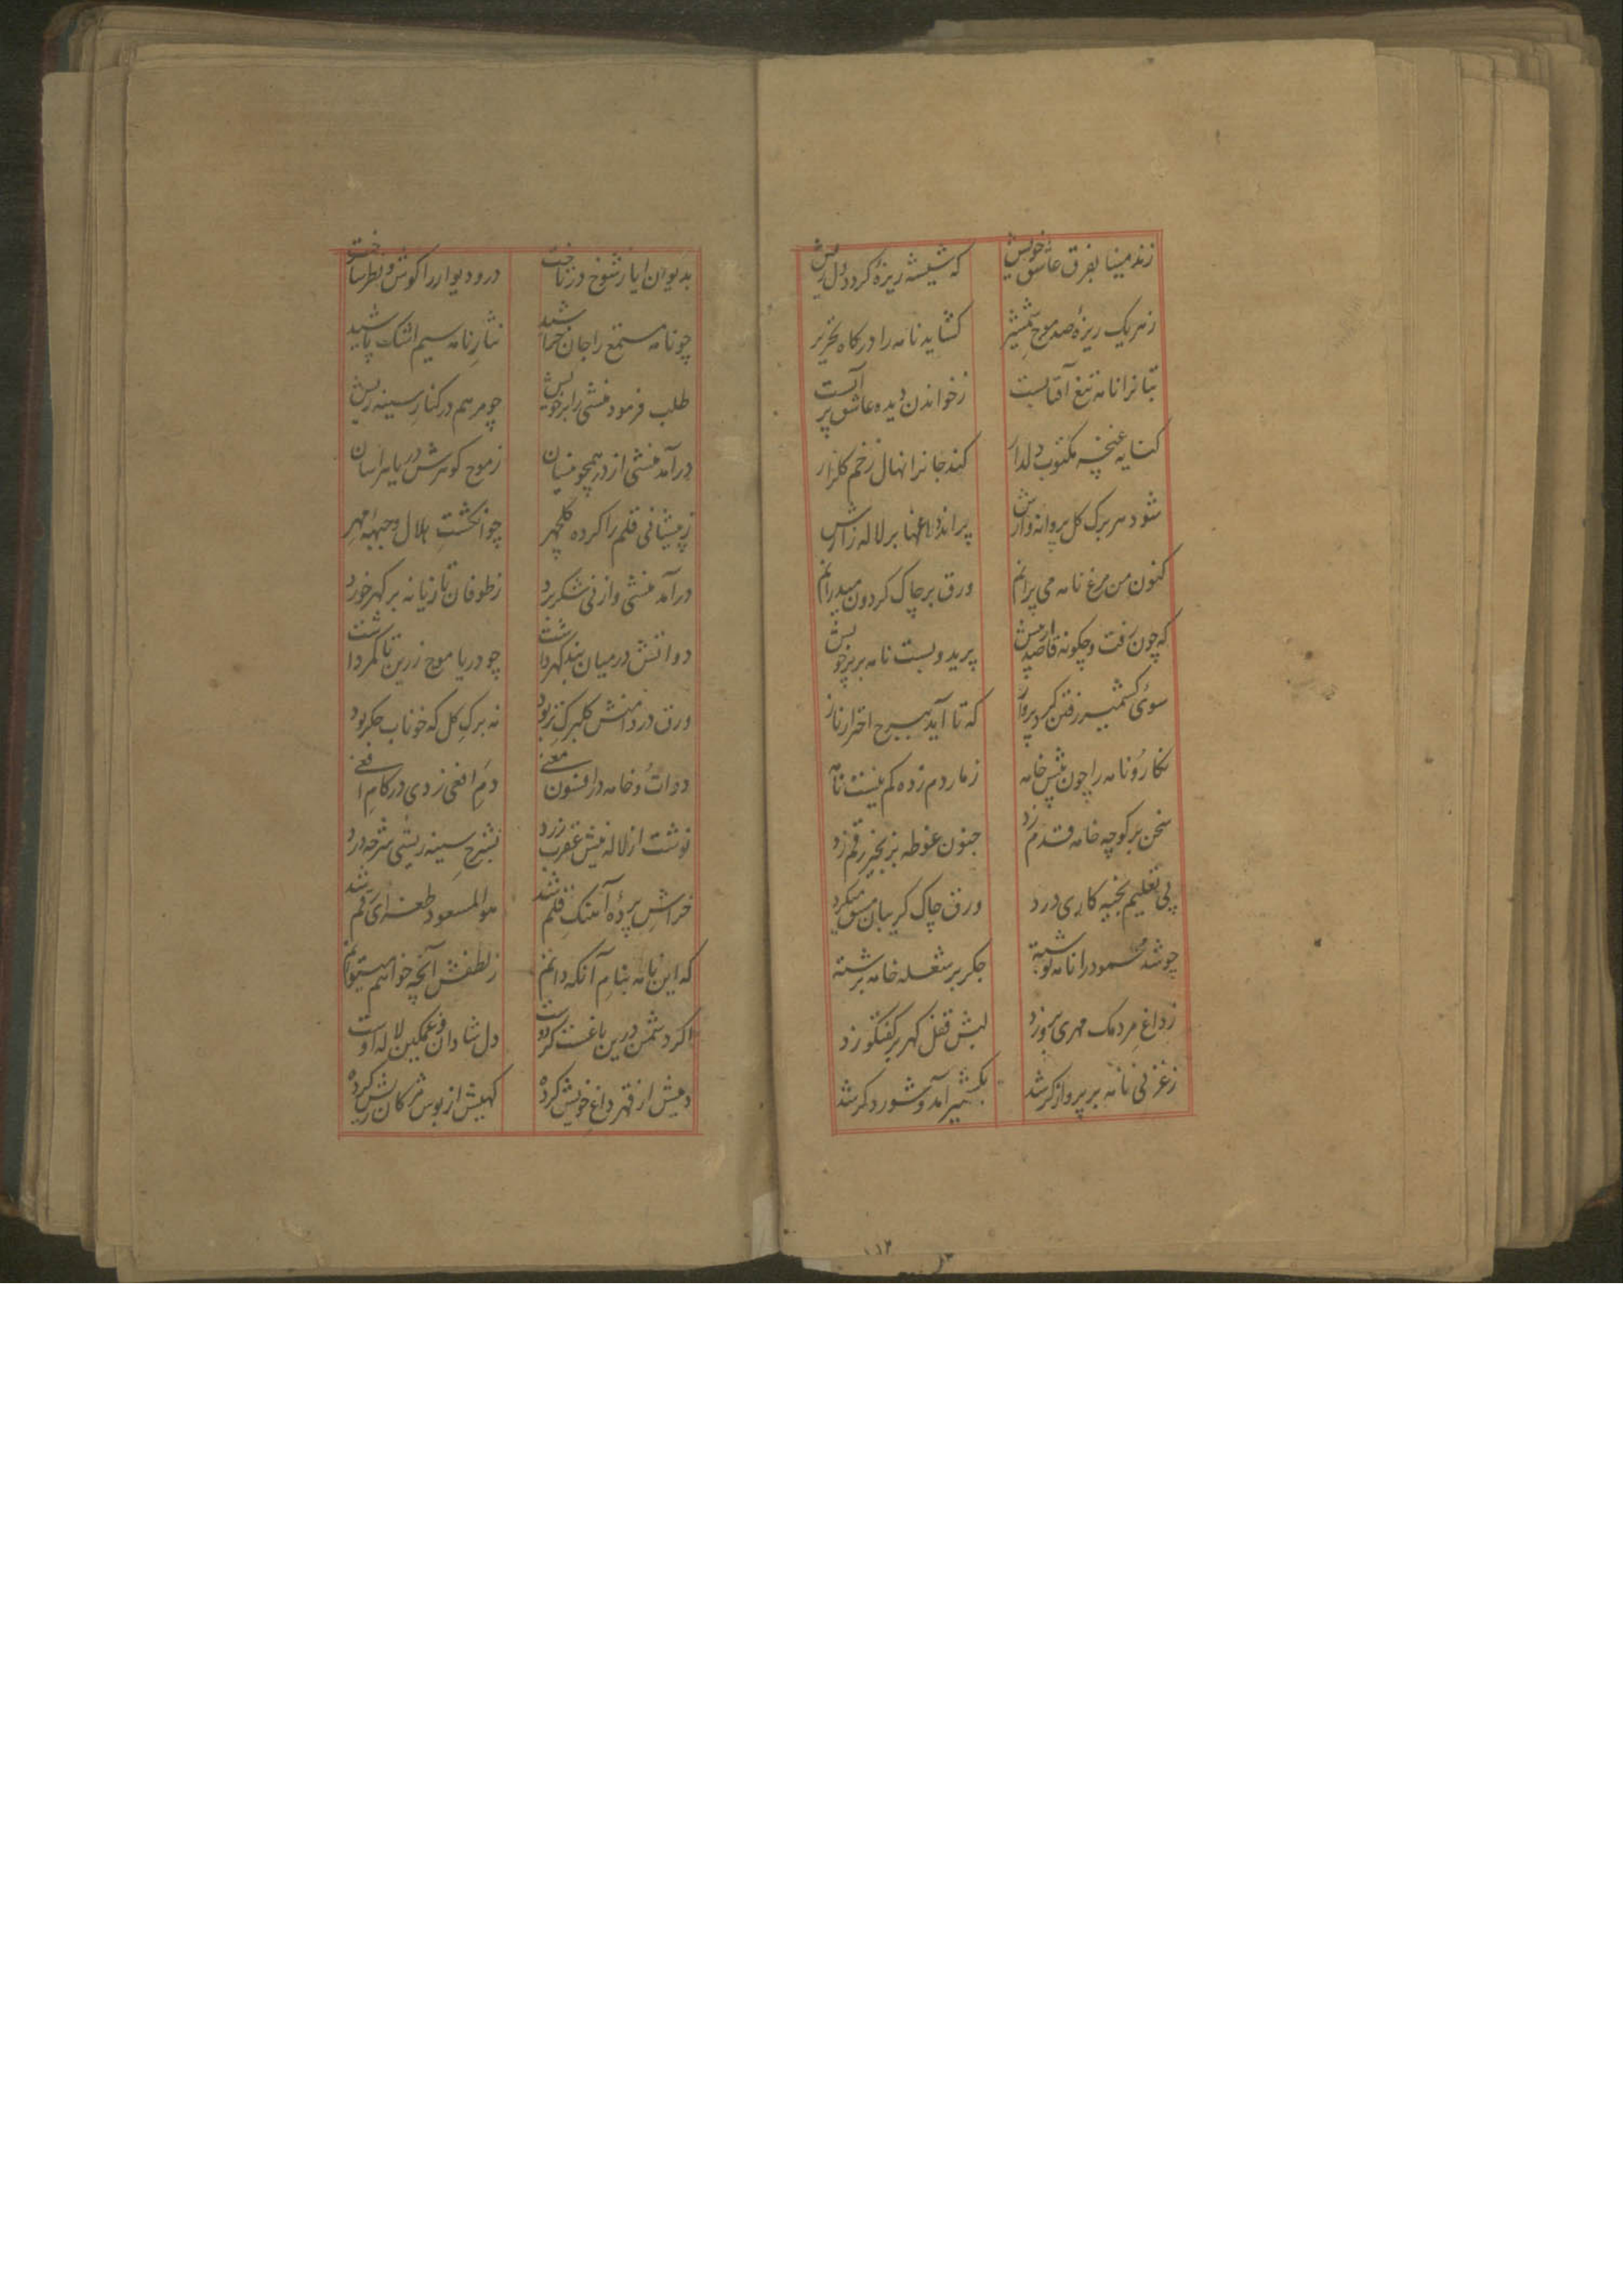 زند مینا بفرق عاشق خویش که شیشه ریزهٔ کردد دل ریش
زهر یک ریزهٔ صد موج شمشیر کشاید نامه را در کاه تحریر
بتانرا نامه تیغ آفتابست زخواندن دیده عاشق پر آبست
کنایه غنچهٔ مکتوب دلدار کند جانرا نهال زخم کلزار
شود هر برک کل پروانه وارش پراند داغها بر لاله زارش
کنون من مرغ نامه می پرانم ورق بر چاک کردون میدرانم
که چون رفت و چکونه قاصد پرید و بست نامه بر پر خویش
سوئ کشمیر رفتن کرد پرواز که تا آید ببرج اختر ناز
نکارُ و نامه را چون نیش خامه زمار دم زده کم نیست نامه
سخن بر کوچه خامه قدم زد جنون غوطه بزنجیر رقم زد
پی تعلیم بخیه کاری درد ورق چاک کریبان مشق میکرد
چو شد محمود را نامه نوشته جکر بر شعله خامه برشته
زداغ مردمک مهری برو زد لبش قفل کهر بر کفتکو زد
زغزنی نامه بر پرواز کر شد بکشمیر آمد و شور دکر شد
بدیوان ایاز شوخ در تاخت در و دیوار را کوش و نظر ساخت
چو نامه مستمع را جان خراشید نثار نامه سیم اشک پاشید
طلب فرمود منشی را بر خویش چو مرهم در کنار سینه ریش
درآمد منشی از در همچو نیسان زموج کوهرش دریا هراسان
زپیشانی قلم را کرده کلچهر چو انکشتِ هلال و جبههٔ مهر
درآمد منشی و از نی شکر برد زطوفان تازیانه بر کهر خورد
دواتش در میان بند کهر داشت چو دریا موج زرین تا کمر داشت
ورق در دامنش کلبرک تر بود نه برکِ کل که خوناب جکر بود
دواتُ و خامه در افسون معنی دمِ افعی زدی در کامِ افعی
نوشت از لاله نیش عقرب زرد بشرحِ سینه ریشی شرحه درد
خراشِ پردهٔ آهنکِ قلم شد هوالمسعود طغرای رقم شد
که این نامه بنامِ آنکه دانم زلطفش آنچه خواهم میتوانم
اکر دشمن درین باغست کر دوست دل شادان و غمکین لاله اوست
دمیش از قهر داغِ خویش کرده کهیش از بوس مژکان ریش کرده
۱۱۳